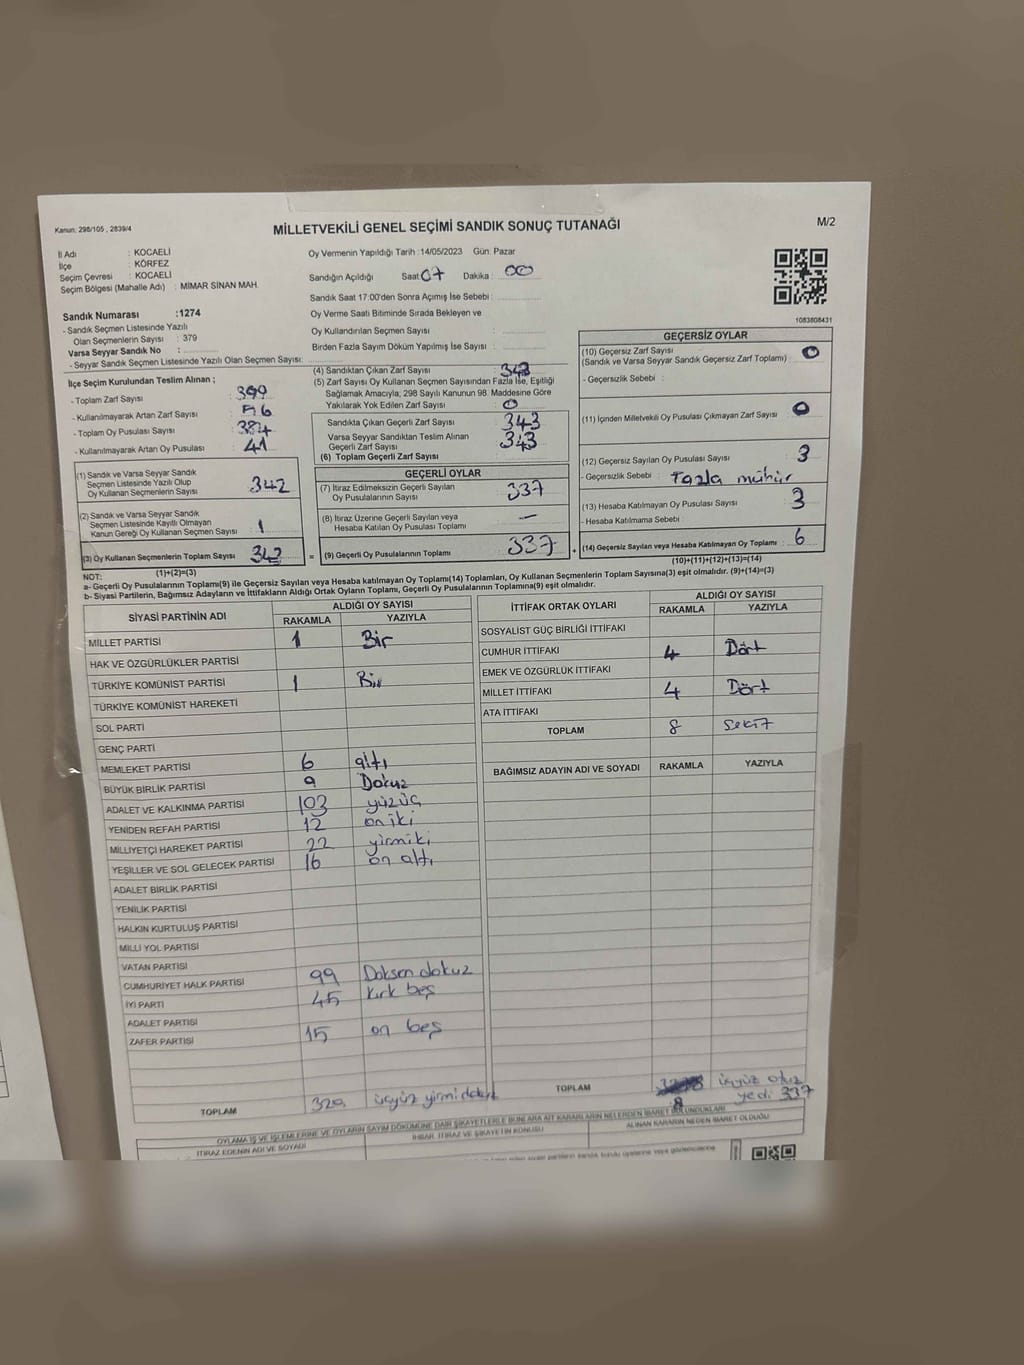 Kanun: 298/105 , 2839/4
MİLLETVEKİLİ GENEL SEÇİMİ SANDIK SONUÇ TUTANAĞI
M/2
İl Adı : KOCAELİ
İlçe : KÖRFEZ
Seçim Çevresi : KOCAELİ
Seçim Bölgesi (Mahalle Adı) : MİMAR SİNAN MAH.
Sandık Numarası :1274
- Sandık Seçmen Listesinde Yazılı
Olan Seçmenlerin Sayısı : 379
Varsa Seyyar Sandık No :
- Seyyar Sandık Seçmen Listesinde Yazılı Olan Seçmen Sayısı:
Oy Vermenin Yapıldığı Tarih :14/05/2023 Gün: Pazar
Sandığın Açıldığı Saat 07 Dakika : 00
Sandık Saat 17:00'den Sonra Açımış İse Sebebi :
Oy Verme Saati Bitiminde Sırada Bekleyen ve
Oy Kullandırılan Seçmen Sayısı :
Birden Fazla Sayım Döküm Yapılmış İse Sayısı :
1083808431
İlçe Seçim Kurulundan Teslim Alınan ;
- Toplam Zarf Sayısı : 399
- Kullanılmayarak Artan Zarf Sayısı :
- Toplam Oy Pusulası Sayısı : 384
- Kullanılmayarak Artan Oy Pusulası : 41
(1) Sandık ve Varsa Seyyar Sandık
Seçmen Listesinde Yazılı Olup
Oy Kullanan Seçmenlerin Sayısı 342
(2) Sandık ve Varsa Seyyar Sandık
Seçmen Listesinde Kayıtlı Olmayan
Kanun Gereği Oy Kullanan Seçmen Sayısı 1
(3) Oy Kullanan Seçmenlerin Toplam Sayısı =
(1)+(2)=(3)
(4) Sandıktan Çıkan Zarf Sayısı : 343
(5) Zarf Sayısı Oy Kullanan Seçmen Sayısından Fazla İse, Eşitliği
Sağlamak Amacıyla; 298 Sayılı Kanunun 98. Maddesine Göre
Yakılarak Yok Edilen Zarf Sayısı : 0
Sandıkta Çıkan Geçerli Zarf Sayısı : 343
Varsa Seyyar Sandıktan Teslim Alınan
Geçerli Zarf Sayısı : 343
(6) Toplam Geçerli Zarf Sayısı :
GEÇERLİ OYLAR
(7) İtiraz Edilmeksizin Geçerli Sayılan
Oy Pusulalarının Sayısı : 337
(8) İtiraz Üzerine Geçerli Sayılan veya
Hesaba Katılan Oy Pusulası Toplamı : —
(9) Geçerli Oy Pusulalarının Toplamı 337 +
GEÇERSİZ OYLAR
(10) Geçersiz Zarf Sayısı
(Sandık ve Varsa Seyyar Sandık Geçersiz Zarf Toplamı) : 0
- Geçersizlik Sebebi :
(11) İçinden Milletvekili Oy Pusulası Çıkmayan Zarf Sayısı : 0
(12) Geçersiz Sayılan Oy Pusulası Sayısı : 3
- Geçersizlik Sebebi : Fazla mühür
(13) Hesaba Katılmayan Oy Pusulası Sayısı : 3
- Hesaba Katılmama Sebebi
(14) Geçersiz Sayılan veya Hesaba Katılmayan Oy Toplamı : 6
(10)+(11)+(12)+(13)=(14)
NOT:
a- Geçerli Oy Pusulalarının Toplamı(9) ile Geçersiz Sayılan veya Hesaba katılmayan Oy Toplamı(14) Toplamları, Oy Kullanan Seçmenlerin Toplam Sayısına(3) eşit olmalıdır. (9)+(14)=(3)
b- Siyasi Partilerin, Bağımsız Adayların ve İttifakların Aldığı Ortak Oyların Toplamı, Geçerli Oy Pusulalarının Toplamına(9) eşit olmalıdır.
SİYASİ PARTİNİN ADI ALDIĞI OY SAYISI
RAKAMLA YAZIYLA
MİLLET PARTİSİ 1 Bir
HAK VE ÖZGÜRLÜKLER PARTİSİ
TÜRKİYE KOMÜNİST PARTİSİ 1 Bir
TÜRKİYE KOMÜNİST HAREKETİ
SOL PARTİ
GENÇ PARTİ
MEMLEKET PARTİSİ 6 altı
BÜYÜK BİRLİK PARTİSİ 9 Dokuz
ADALET VE KALKINMA PARTİSİ 103 yüzüç
YENİDEN REFAH PARTİSİ 12 on iki
MİLLİYETÇİ HAREKET PARTİSİ 22 yirmiki
YEŞİLLER VE SOL GELECEK PARTİSİ 16 on altı
ADALET BİRLİK PARTİSİ
YENİLİK PARTİSİ
HALKIN KURTULUŞ PARTİSİ
MİLLİ YOL PARTİSİ
VATAN PARTİSİ
CUMHURİYET HALK PARTİSİ 99 Doksan dokuz
İYİ PARTİ 45 Kırk beş
ADALET PARTİSİ
ZAFER PARTİSİ 15 on beş
TOPLAM 329
İTTİFAK ORTAK OYLARI ALDIĞI OY SAYISI
RAKAMLA YAZIYLA
SOSYALİST GÜÇ BİRLİĞİ İTTİFAKI
CUMHUR İTTİFAKI 4 Dört
EMEK VE ÖZGÜRLÜK İTTİFAKI
MİLLET İTTİFAKI 4 Dört
ATA İTTİFAKI
TOPLAM 8 Sekiz
BAĞIMSIZ ADAYIN ADI VE SOYADI RAKAMLA YAZIYLA
TOPLAM üçyüz otuz
8 yedi 337
OYLAMA İŞ VE İŞLEMLERİNE VE OYLARIN SAYIM DÖKÜMÜNE DAİR ŞİKAYETLERLE BUNLARA AİT KARARLARIN NELERDEN İBARET BULUNDUKLARI
İTİRAZ EDENİN ADI VE SOYADI İHBAR İTİRAZ VE ŞİKAYETİN KONUSU ALINAN KARARIN NEDEN İBARET OLDUĞU